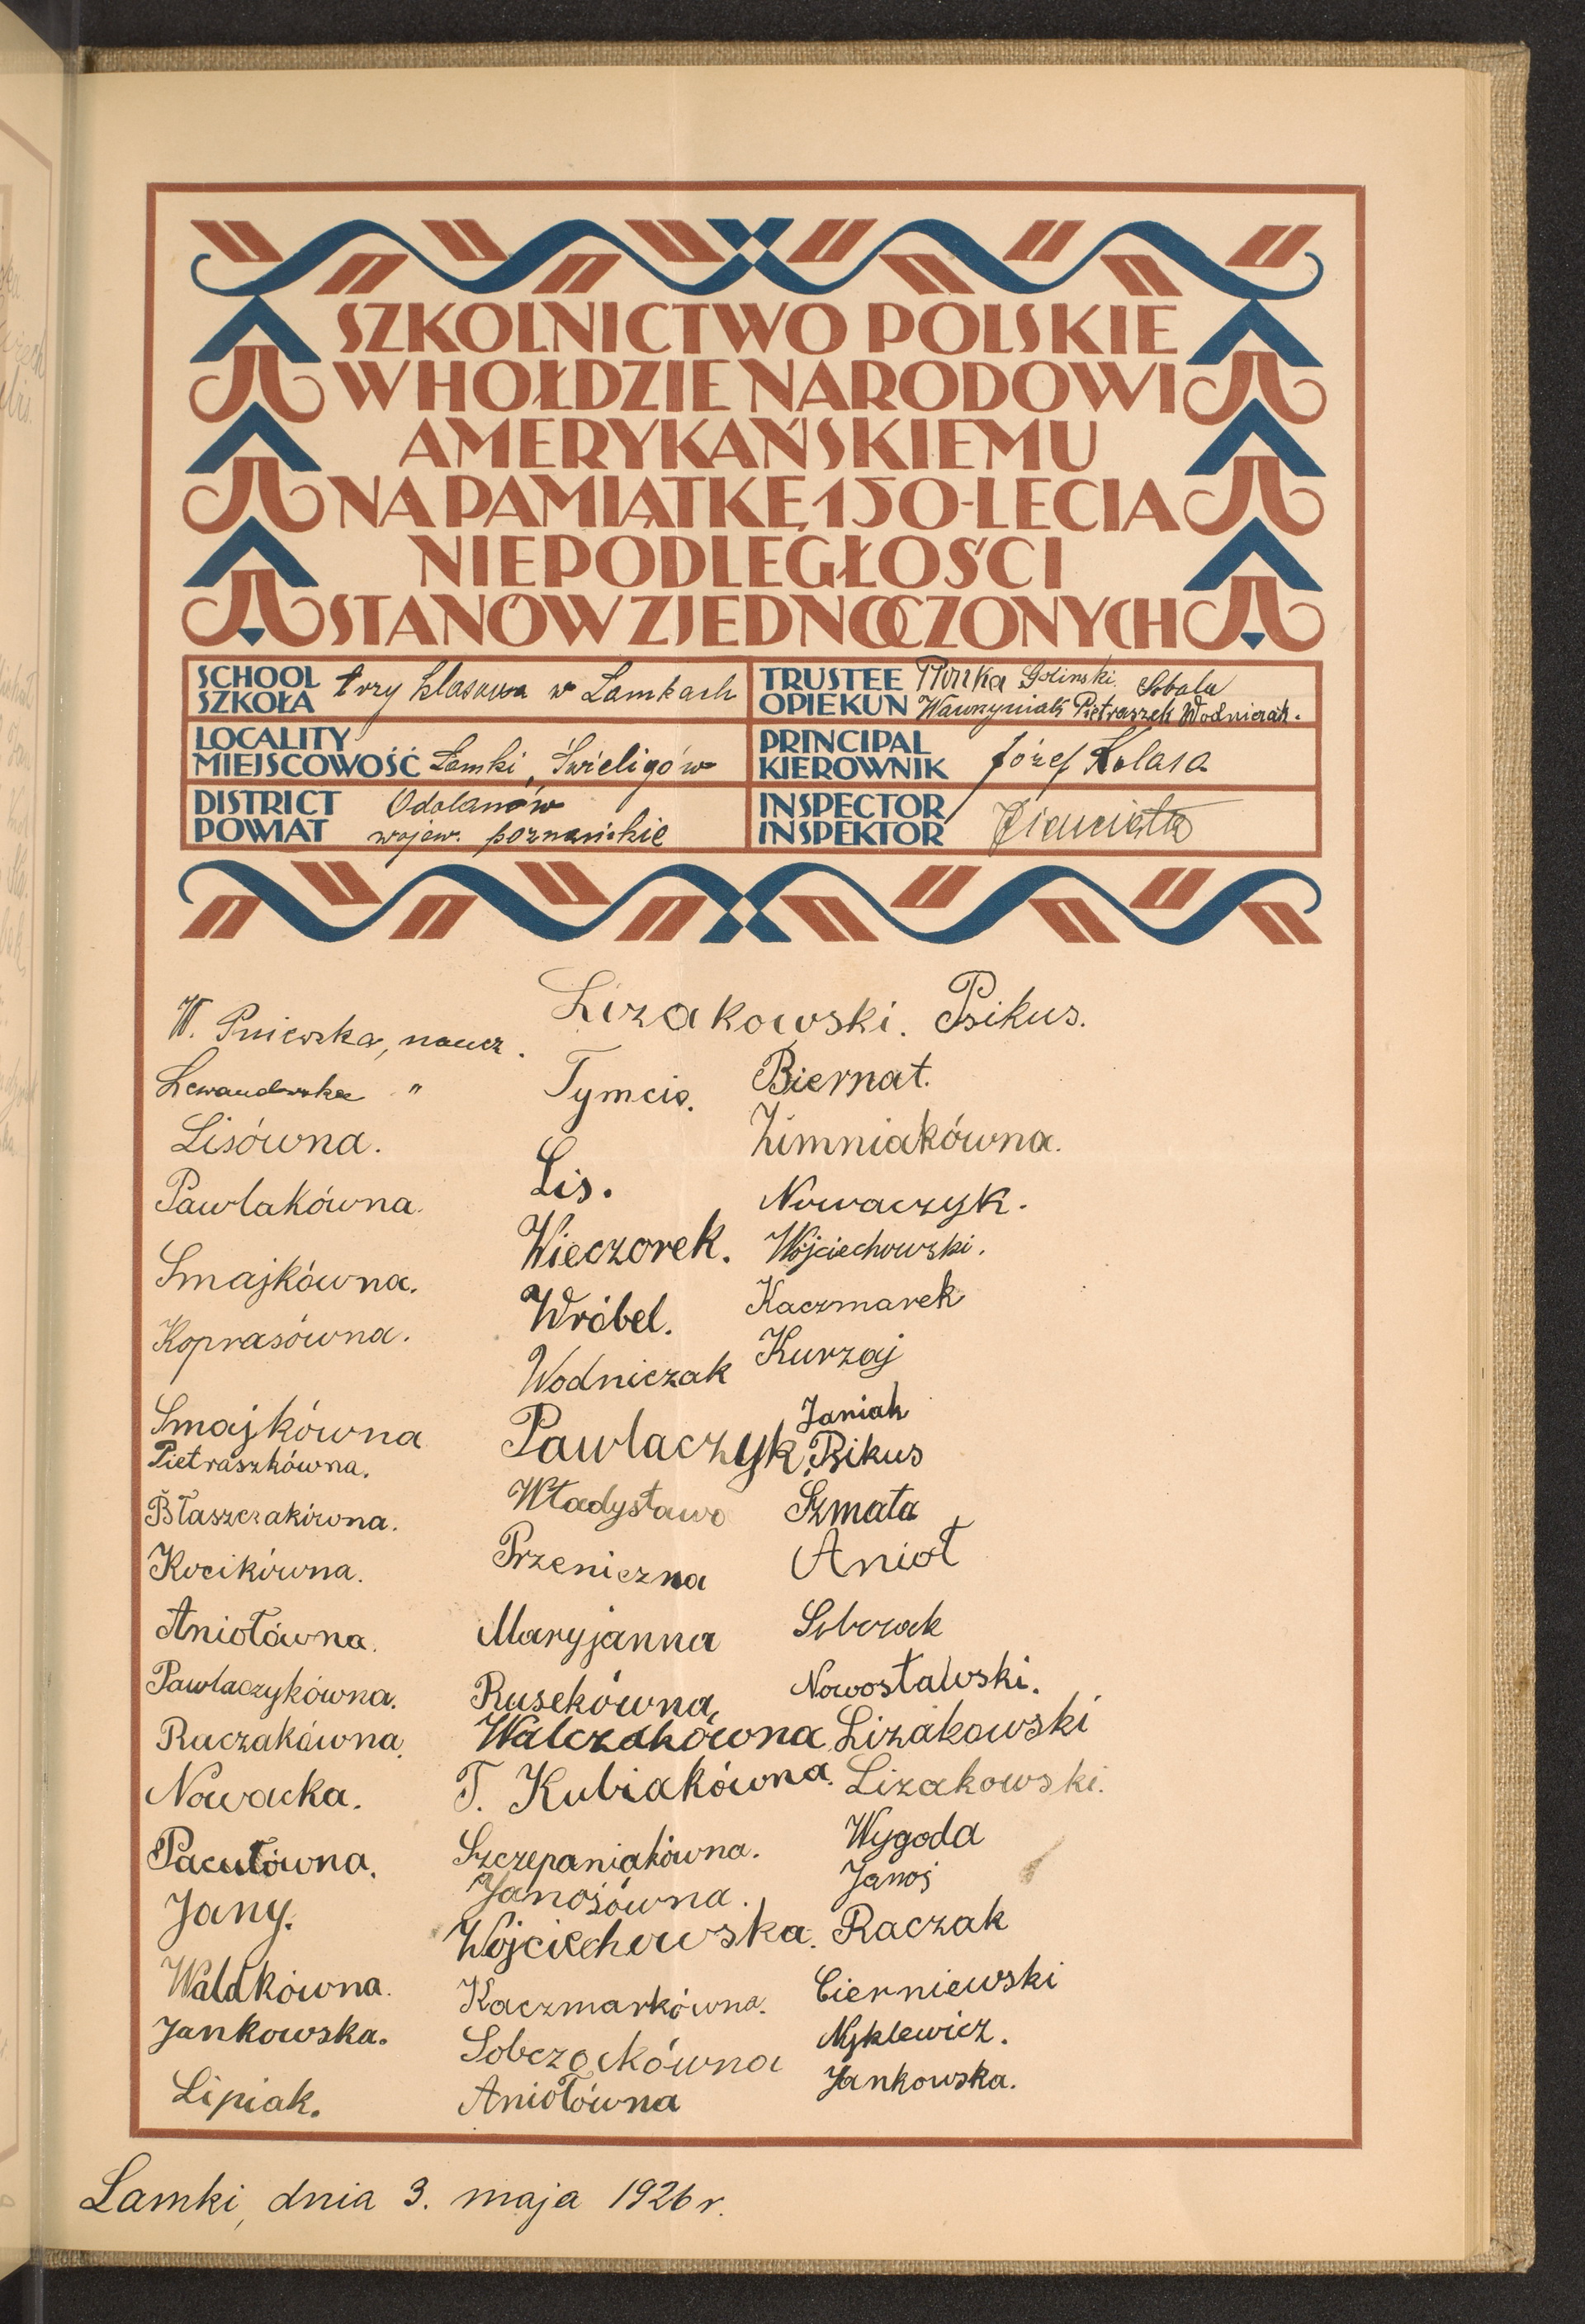 SZKOLNICTWO POLSKIE
W HOŁDZIE NARODOWI
AMERYKAŃSKIEMU
NA PAMIĄTKĘ 150-LECIA
NIEPODLEGŁOŚCI
STANÓW ZJEDNOCZONYCH
SCHOOL
SZKOŁA
trzy klasowa w Lamkach
TRUSTEE
OPIEKUN
Golinski. Sobala
Wawrzyniak Pietraszek Wodniczak.
LOCALITY
MIEJSCOWOŚĆ
Lamki, Świeligów
PRINCIPAL
KIEROWNIK
Józef Kolasa
DISTRICT
POWIAT
Odolanów
wojew. poznańskie
INSPECTOR
INSPEKTOR
W. Pniewska, naucz.
Lewandowska "
Lisówna.
Pawlakówna.
Smajkówna.
Koprasówna.
Smajkówna
Pietraszkówna.
Błaszczakówna.
Kocikówna.
Aniołówna.
Pawlaczykówna.
Raczakówna.
Nowacka.
Pacułówna.
Jany.
Waldkówna.
Jankowska.
Lipiak.
Lizakowski.
Tymcio.
Lis.
Wieczorek.
Wróbel.
Wodniczak
Pawlaczyk.
Władysława
Przeniczna
Maryjanna
Rusekówna,
Walczakówna
T. Kubiakówna.
Szczepaniakówna.
Janośówna.
Wojciechowska.
Kaczmarkówna.
Sobczackówna
Aniołówna
Psikus.
Biernat.
Zimniakówna.
Nowaczyk.
Wojciechowski.
Kaczmarek
Kurzaj
Janiak
Psikus
Szmata
Anioł
Sobczak
Nowosławski.
Lizakowski
Lizakowski.
Wygoda
Janoś
Raczak
Cierniewski
Nyklewicz.
Jankowska.
Lamki, dnia 3. maja 1926 r.